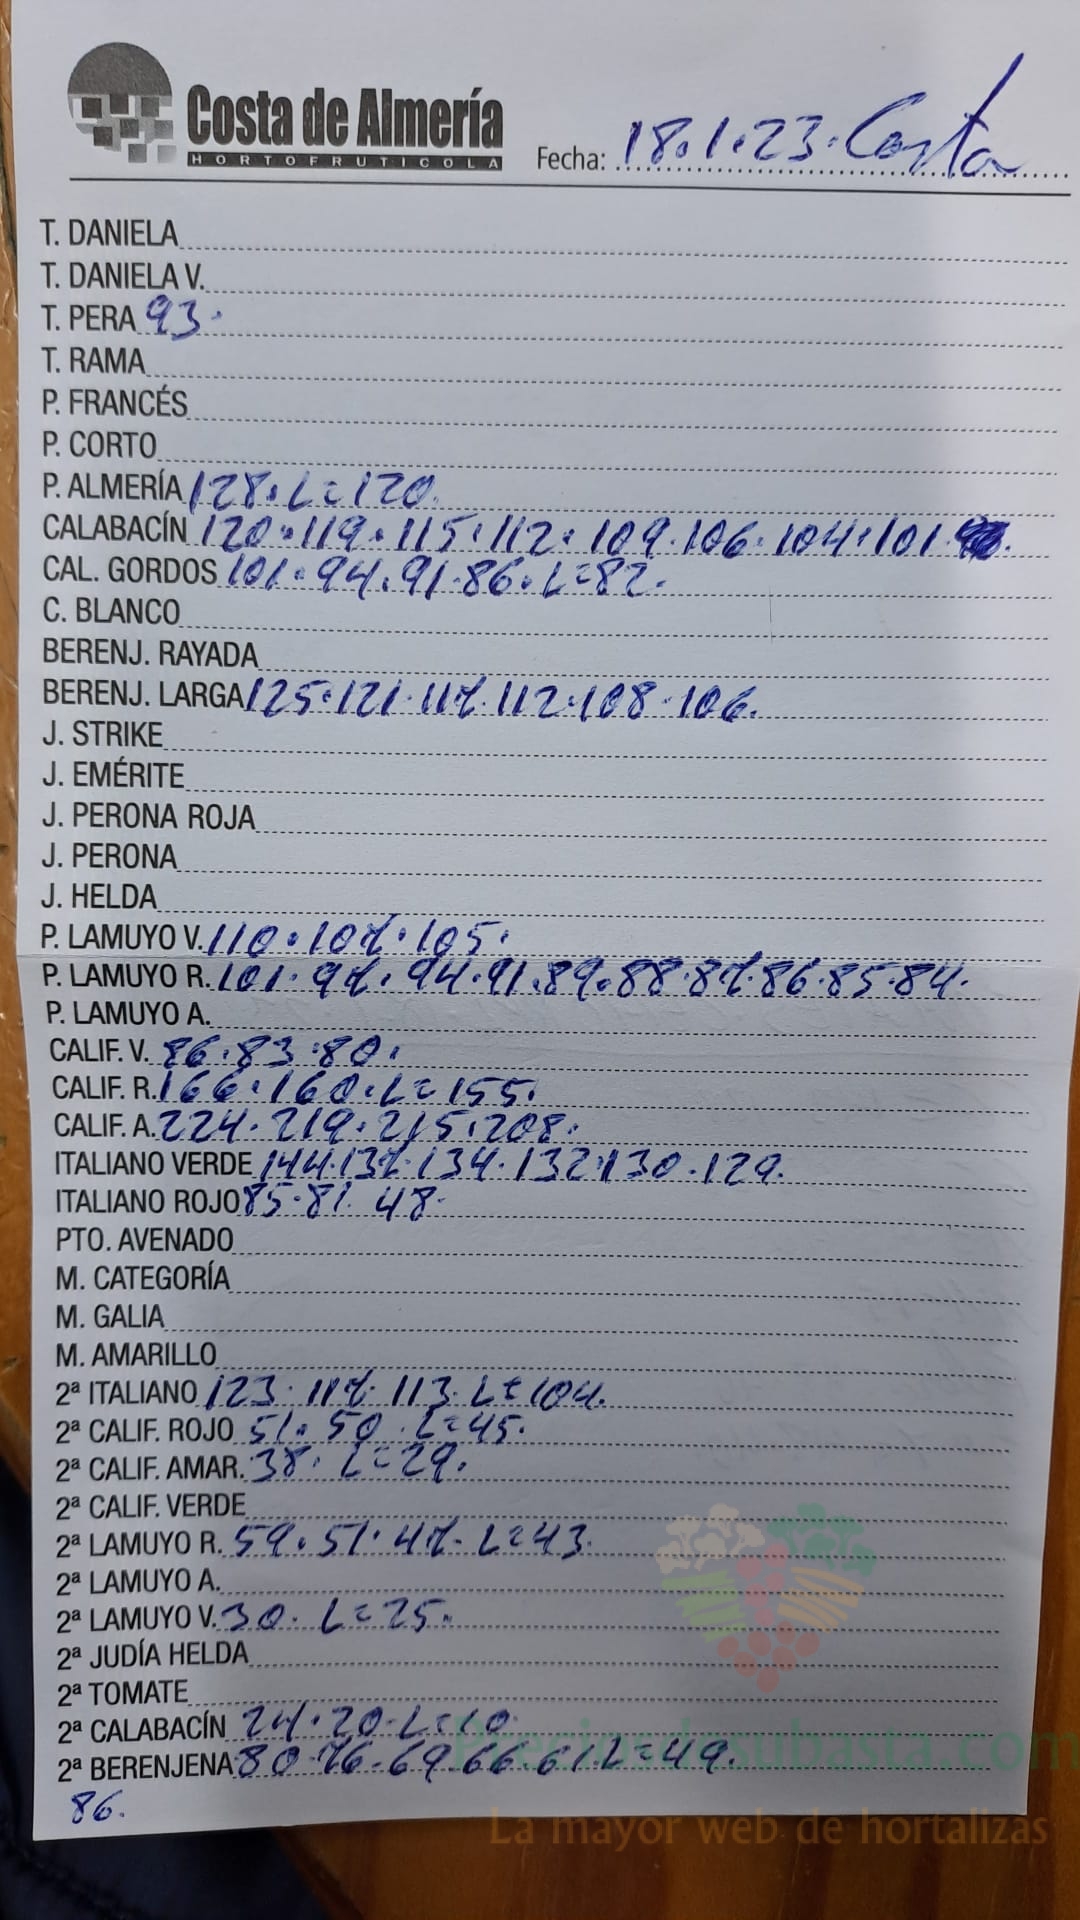 Costa de Almería
HORTOFRUTICOLA
Fecha: 18.1.23. Costa
T. DANIELA
T. DANIELA V.
T. PERA 93.
T. RAMA
P. FRANCÉS
P. CORTO
P. ALMERÍA 128. L=120.
CALABACÍN 120.119.115.112.109.106.104.101.
CAL. GORDOS 101.94.91.86. L=82.
C. BLANCO
BERENJ. RAYADA
BERENJ. LARGA 125.121.117.112.108.106.
J. STRIKE
J. EMÉRITE
J. PERONA ROJA
J. PERONA
J. HELDA
P. LAMUYO V. 110.107.105.
P. LAMUYO R. 101.97.94.91.89.88.87.86.85.84.
P. LAMUYO A.
CALIF. V. 86.83.80.
CALIF. R. 166.160. L=155.
CALIF. A. 224.219.215.208.
ITALIANO VERDE 144.137.134.132.130.129.
ITALIANO ROJO 85.81. 48.
PTO. AVENADO
M. CATEGORÍA
M. GALIA
M. AMARILLO
2ª ITALIANO 123.117.113. L=104.
2ª CALIF. ROJO 51.50. L=45.
2ª CALIF. AMAR. 38. L=29.
2ª CALIF. VERDE
2ª LAMUYO R. 59.51.47. L=43.
2ª LAMUYO A.
2ª LAMUYO V. 30. L=25.
2ª JUDÍA HELDA
2ª TOMATE
2ª CALABACÍN 24.20. L=10.
2ª BERENJENA 80.76.69.66.61. L=49.
86.
Preciosdesubasta.com
La mayor web de hortalizas